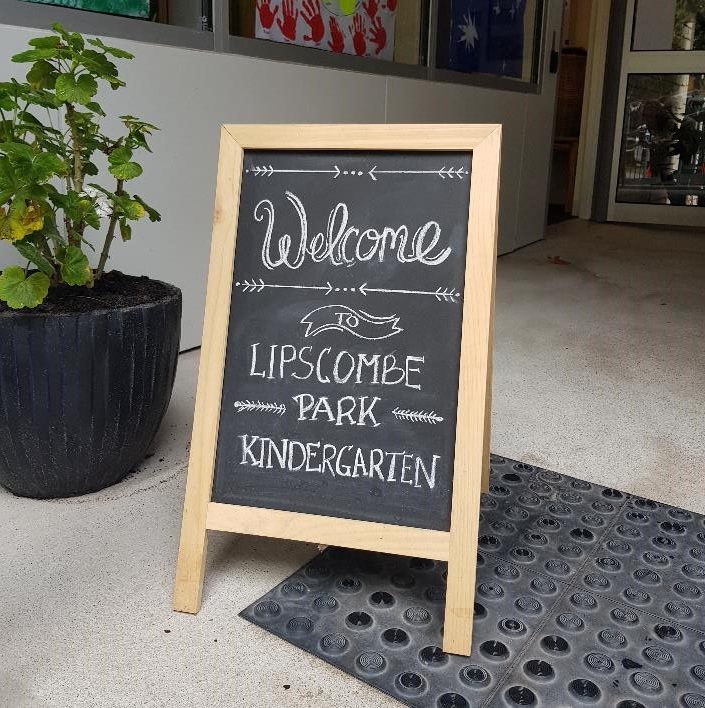 Welcome
TO
LIPSCOMBE
PARK
KINDERGARTEN